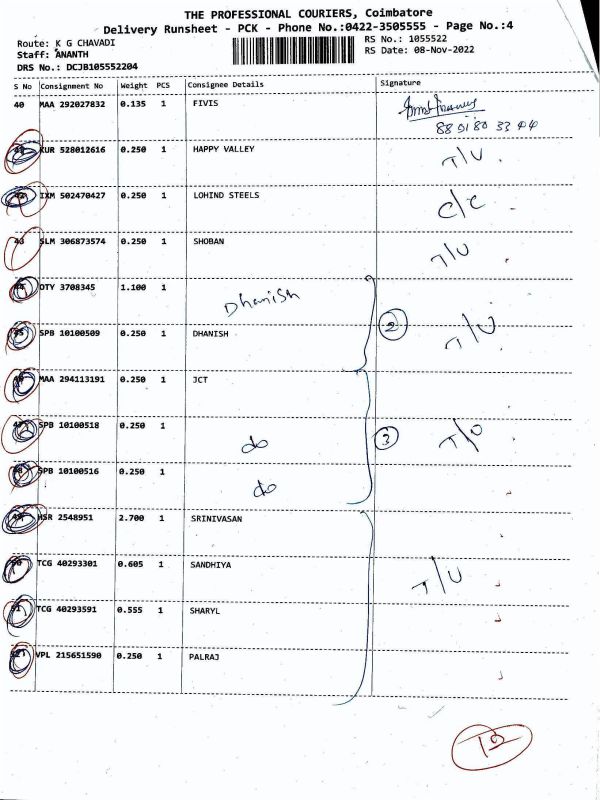 THE PROFESSIONAL COURIERS, Coimbatore
Delivery Runsheet - PCK - Phone No.:0422-3505555 - Page No.:4
Route: K G CHAVADI
RS No.: 1055522
Staff: ANANTH
RS Date: 08-Nov-2022
DRS No.: DCJB105552204
S No Consignment No Weight PCS Consignee Details Signature
40 MAA 292027832 0.135 1 FIVIS
88 01 80 33 44
41 KUR 528012616 0.250 1 HAPPY VALLEY T/U
42 IXM 502470427 0.250 1 LOHIND STEELS C/C
43 SLM 306873574 0.250 1 SHOBAN T/U
44 OTY 3708345 1.100 1 Dhanish
45 SPB 10100509 0.250 1 DHANISH 2 T/U
46 MAA 294113191 0.250 1 JCT
47 SPB 10100518 0.250 1 do 3 T/U
48 SPB 10100516 0.250 1 do
49 HSR 2548951 2.700 1 SRINIVASAN
50 TCG 40293301 0.605 1 SANDHIYA T/U
51 TCG 40293591 0.555 1 SHARYL
52 VPL 215651590 0.250 1 PALRAJ